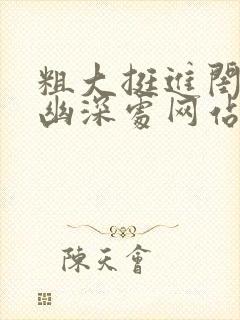 粗大挺进闺
幽深处网佔
陳天會